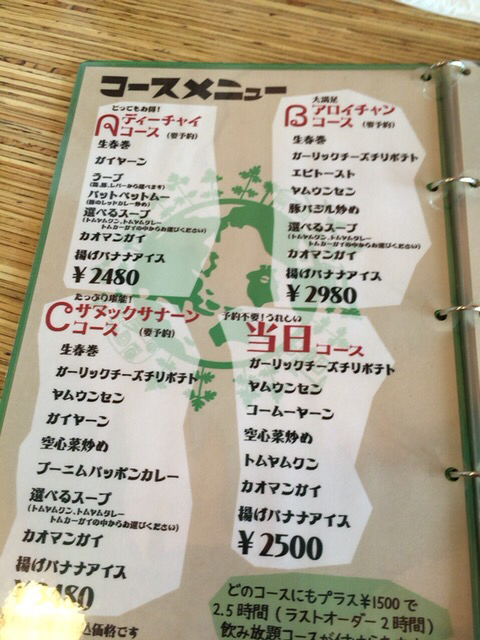 コースメニュー
とってもお得!
A ディーチャイ
コース (要予約)
生春巻
ガイヤーン
ラープ
パットペットムー
(豚のレッドカレー炒め)
選べるスープ
(トムヤムクン、トムヤムタレー
トムカーガイの中からお選びください)
カオマンガイ
揚げバナナアイス
¥2480
大満足
B アロイチャン
コース (要予約)
生春巻
ガーリックチーズチリポテト
エビトースト
ヤムウンセン
豚バジル炒め
選べるスープ
(トムヤムクン、トムヤムタレー
トムカーガイの中からお選びください)
カオマンガイ
揚げバナナアイス
¥2980
たっぷり堪能!
C サヌックサナーン
コース (要予約)
生春巻
ガーリックチーズチリポテト
ヤムウンセン
ガイヤーン
空心菜炒め
プーニムパッポンカレー
選べるスープ
(トムヤムクン、トムヤムタレー
トムカーガイの中からお選びください)
カオマンガイ
揚げバナナアイス
480
込価格です
予約不要!うれしい
当日コース
ガーリックチーズチリポテト
ヤムウンセン
コームーヤーン
空心菜炒め
トムヤムクン
カオマンガイ
揚げバナナアイス
¥2500
どのコースにもプラス¥1500で
2.5時間(ラストオーダー2時間)
飲み放題コースが